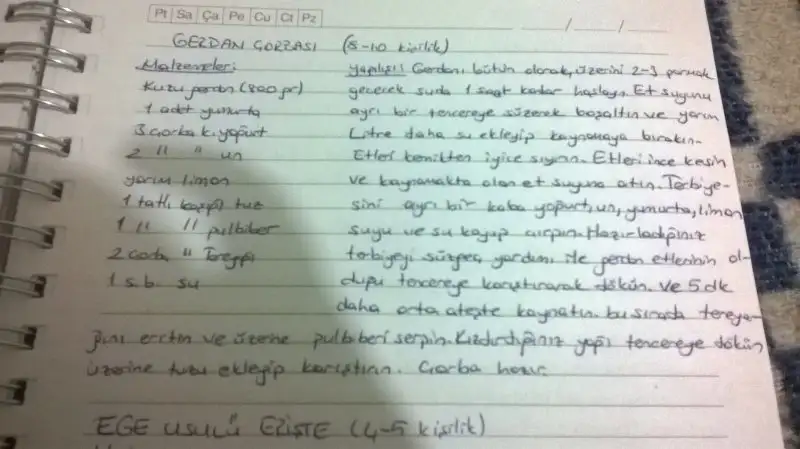 Pt Sa Ça Pe Cu Ct Pz
GERDAN ÇORBASI (8-10 kişilik)
Malzemeler:
Kuzu gerdan (800 gr)
1 adet yumurta
3 çorba k. yoğurt
2 " " un
yarım limon
1 tatlı kaşığı tuz
1 " " pulbiber
2 çorba " Tereyağı
1 s.b. su
Yapılışı: Gerdanı bütün olarak, üzerini 2-3 parmak
geçecek suda 1 saat kadar haşlayın. Et suyunu
ayrı bir tencereye süzerek boşaltın ve yarım
Litre daha su ekleyip kaynamaya bırakın.
Etleri kemikten iyice sıyırın. Etleri ince kesin
ve kaynamakta olan et suyuna atın. Terbiye-
sini ayrı bir kaba yoğurt, un, yumurta, limon
suyu ve su koyup çırpın. Hazırladığınız
terbiyeyi süzgeç yardımı ile gerdan etlerinin ol-
duğu tencereye karıştırarak dökün. Ve 5 dk
daha orta ateşte kaynatın. bu sırada tereya-
ğını eritin ve üzerine pulbiberi serpin. Kızdırdığınız yağı tencereye dökün
üzerine tuzu ekleyip karıştırın. Çorba hazır
EGE USULÜ ERİŞTE (4-5 kişilik)